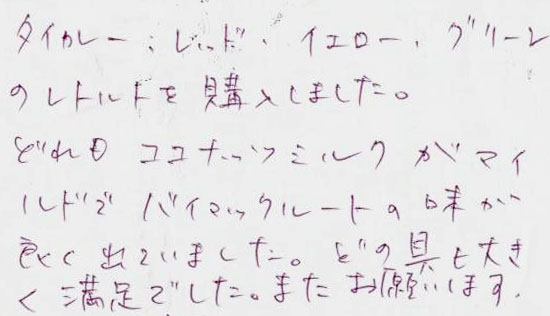 タイカレー:レッド、イエロー、グリーン
のレトルトを購入しました。
どれもココナッツミルクがマイ
ルドでバイマックルートの味が
良く出ていました。どの具も大き
く満足でした。またお願いします。